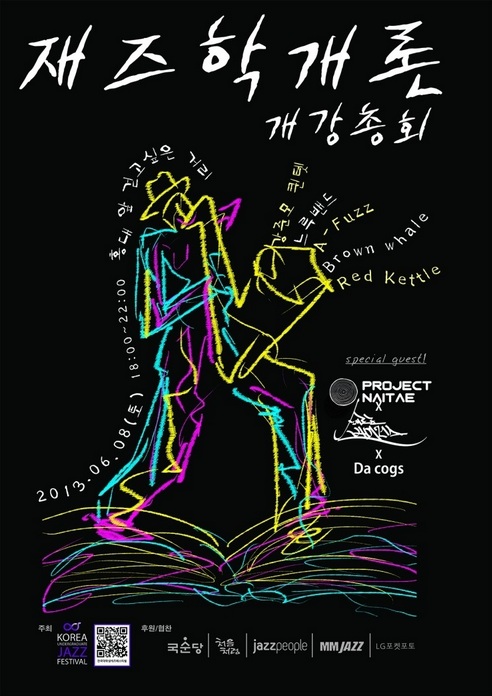 재즈학개론
개강총회
홍대 앞 걷고싶은 거리
2013.06.08(토) 18:00~22:00
강준모 퀸텟
느루밴드
A-Fuzz
Brown whale
Red Kettle
special guest!
PROJECT
NAITAE
x
x
Da cogs
주최
KOREA
UNDERGRADUATE
JAZZ
FESTIVAL
후원/협찬
국순당
처음처럼
jazzpeople
MMJAZZ
LG포켓포토